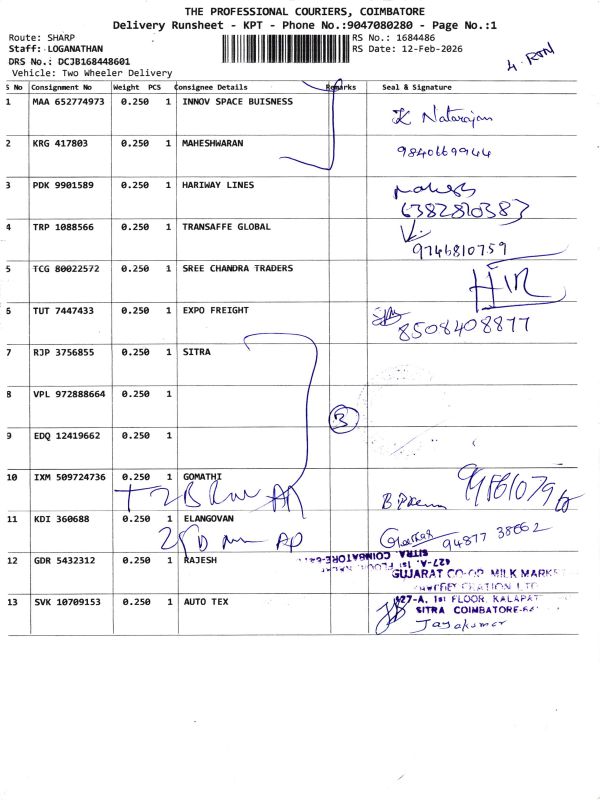 THE PROFESSIONAL COURIERS, COIMBATORE
Delivery Runsheet - KPT - Phone No.:9047080280 - Page No.:1
Route: SHARP
RS No.: 1684486
Staff: LOGANATHAN
RS Date: 12-Feb-2026
DRS No.: DCJB168448601
Vehicle: Two Wheeler Delivery
4 RTN
S No Consignment No Weight PCS Consignee Details Remarks Seal & Signature
1 MAA 652774973 0.250 1 INNOV SPACE BUISNESS K Natarajan
2 KRG 417803 0.250 1 MAHESHWARAN 9840669944
3 PDK 9901589 0.250 1 HARIWAY LINES
6382810387
4 TRP 1088566 0.250 1 TRANSAFFE GLOBAL
9746810759
5 TCG 80022572 0.250 1 SREE CHANDRA TRADERS
6 TUT 7447433 0.250 1 EXPO FREIGHT 8508408877
7 RJP 3756855 0.250 1 SITRA
8 VPL 972888664 0.250 1
3
9 EDQ 12419662 0.250 1
10 IXM 509724736 0.250 1 GOMATHI
11 KDI 360688 0.250 1 ELANGOVAN
94877 38662
12 GDR 5432312 0.250 1 RAJESH
427-A, 1st FLOOR,
SITRA, COIMBATORE-641
GUJARAT CO-OP. MILK MARKET
13 SVK 10709153 0.250 1 AUTO TEX
427-A, 1st FLOOR, KALAPAT
SITRA COIMBATORE-64
Jayakumar